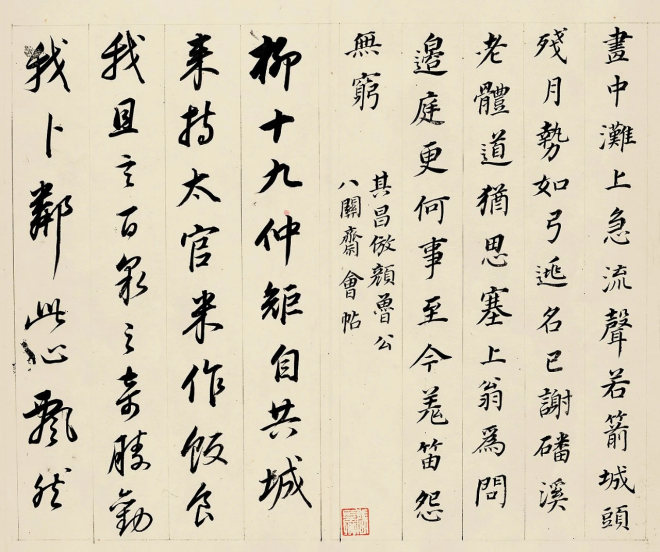 畫中灘上急流聲若箭城頭
殘月勢如弓逃名已謝磻溪
老體道猶思塞上翁爲問
邉庭更何事至今羗笛怨
無窮
其昌倣顏魯公
八關齋會帖
柳十九仲矩自共城
来持太官米作飯食
我且言百泉之奇勝勸
我卜鄰此心飄然